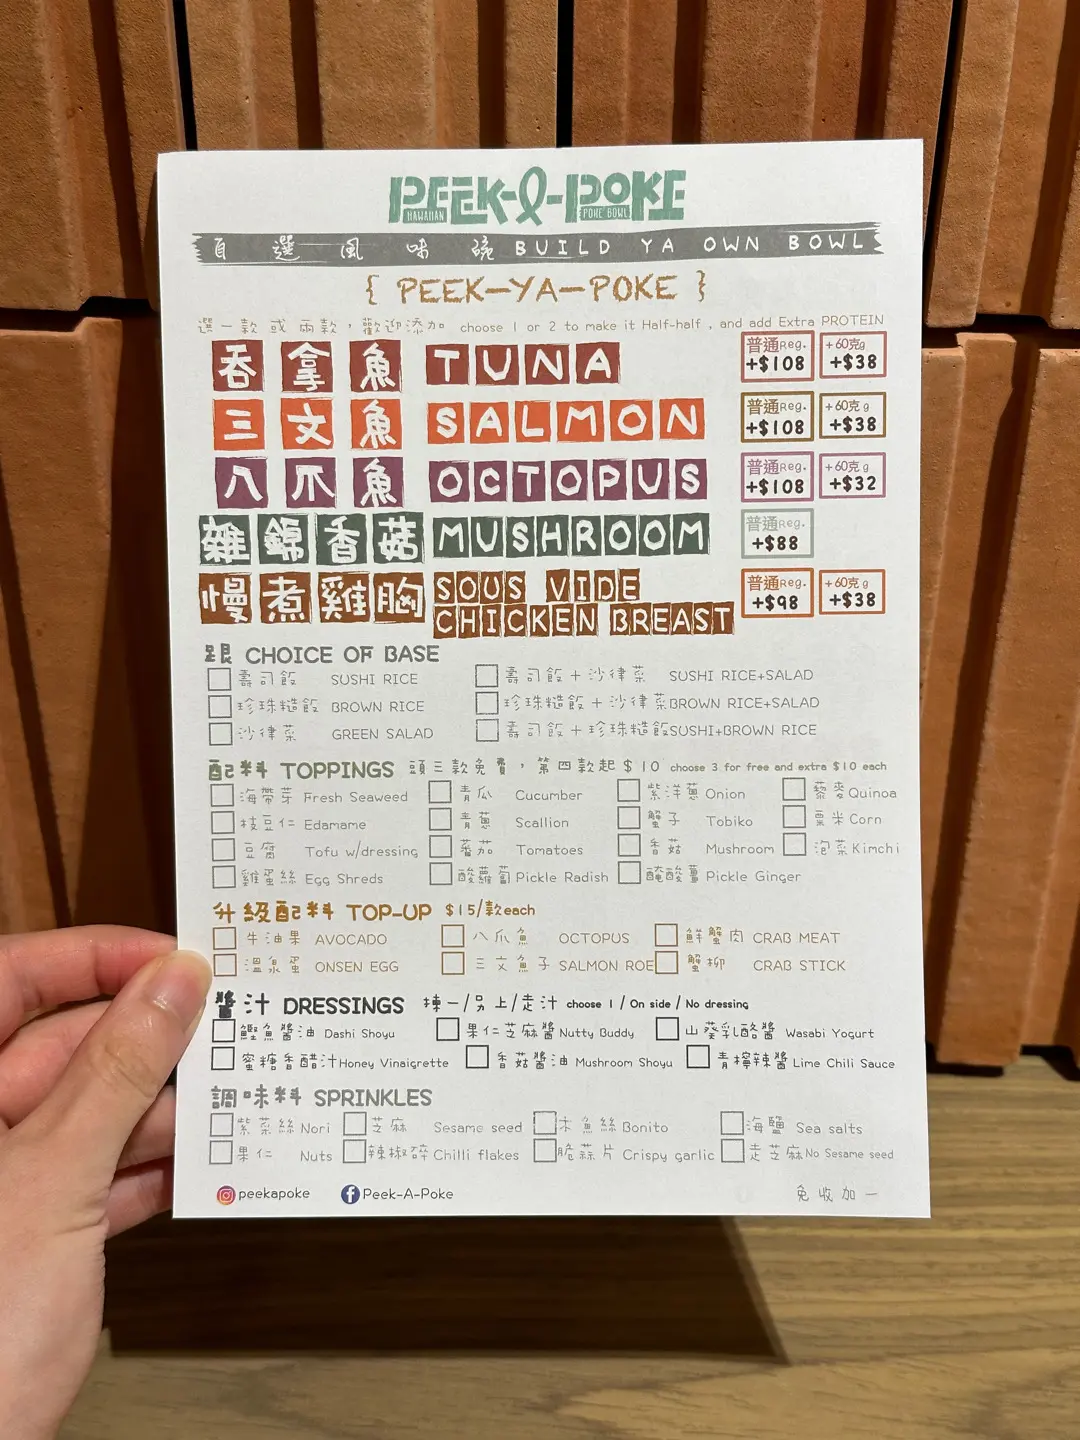 PEEK-A-POKE
HAWAIIAN POKE BOWL
自選風味碗 BUILD YA OWN BOWL
{ PEEK-YA-POKE }
選一款或兩款，歡迎添加 choose 1 or 2 to make it Half-half , and add Extra PROTEIN
吞拿魚 TUNA 普通Reg. +$108 +60克g +$38
三文魚 SALMON 普通Reg. +$108 +60克g +$38
八爪魚 OCTOPUS 普通Reg. +$108 +60克g +$32
雜錦香菇 MUSHROOM 普通Reg. +$88
慢煮雞胸 SOUS VIDE CHICKEN BREAST 普通Reg. +$98 +60克g +$38
跟 CHOICE OF BASE
壽司飯 SUSHI RICE 壽司飯+沙律菜 SUSHI RICE+SALAD
珍珠糙飯 BROWN RICE 珍珠糙飯+沙律菜BROWN RICE+SALAD
沙律菜 GREEN SALAD 壽司飯+珍珠糙飯SUSHI+BROWN RICE
配料 TOPPINGS 頭三款免費，第四款起$10 choose 3 for free and extra $10 each
海帶芽 Fresh Seaweed 青瓜 Cucumber 紫洋蔥 Onion 藜麥 Quinoa
枝豆仁 Edamame 青蔥 Scallion 蟹子 Tobiko 粟米 Corn
豆腐 Tofu w/dressing 蕃茄 Tomatoes 香菇 Mushroom 泡菜 Kimchi
雞蛋絲 Egg Shreds 酸蘿蔔 Pickle Radish 醃酸薑 Pickle Ginger
升級配料 TOP-UP $15/款each
牛油果 AVOCADO 八爪魚 OCTOPUS 鮮蟹肉 CRAB MEAT
溫泉蛋 ONSEN EGG 三文魚子 SALMON ROE 蟹柳 CRAB STICK
醬汁 DRESSINGS 揀一/另上/走汁 choose 1 / On side / No dressing
鰹魚醬油 Dashi Shoyu 果仁芝麻醬 Nutty Buddy 山葵乳酪醬 Wasabi Yogurt
蜜糖香醋汁 Honey Vinaigrette 香菇醬油 Mushroom Shoyu 青檸辣醬 Lime Chili Sauce
調味料 SPRINKLES
紫菜絲 Nori 芝麻 Sesame seed 木魚絲 Bonito 海鹽 Sea salts
果仁 Nuts 辣椒碎 Chilli flakes 脆蒜片 Crispy garlic 走芝麻 No Sesame seed
peekapoke Peek-A-Poke 免收加一